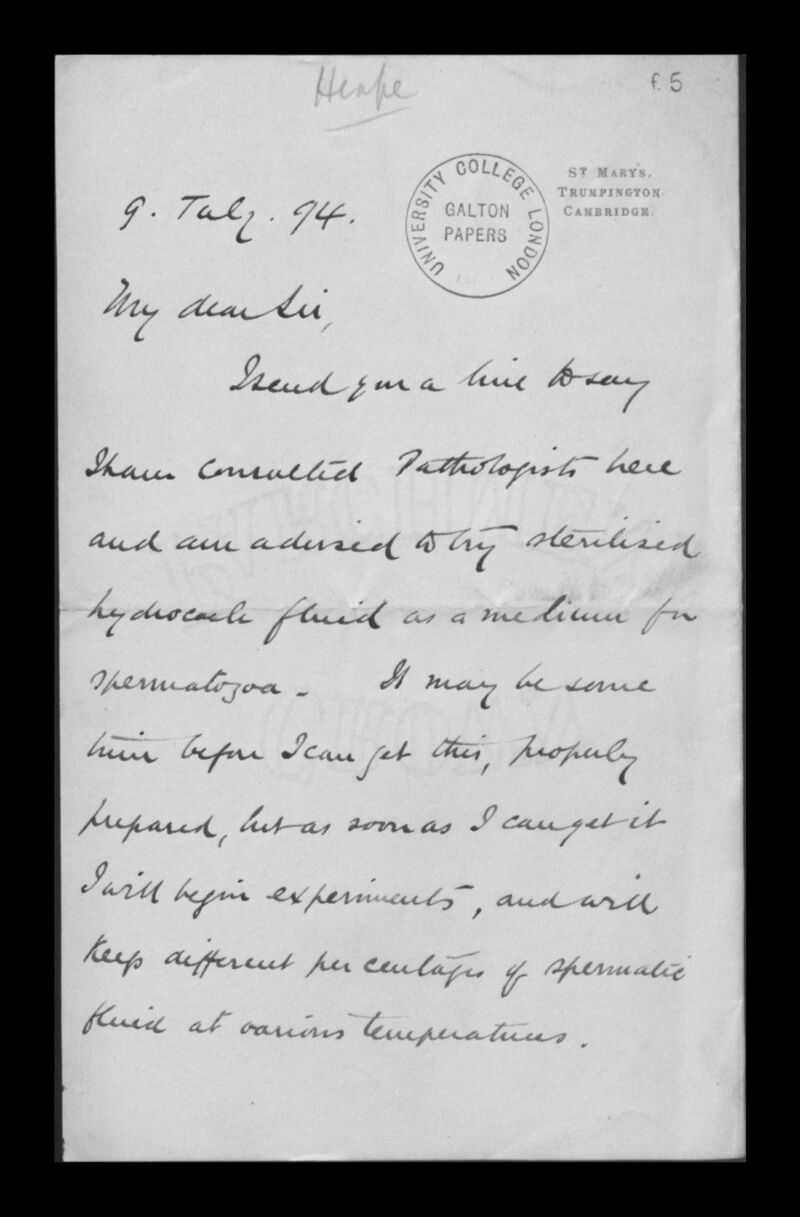 Heape
f. 5
UNIVERSITY COLLEGE LONDON
GALTON
PAPERS
ST MARY'S.
TRUMPINGTON.
CAMBRIDGE.
9. July. 94.
My dear Sir,
I send you a line to say
I have consulted Pathologists here
and am advised to try sterilised
hydrocele fluid as a medium for
spermatozoa - It may be some
time before I can get this, properly
prepared, but as soon as I can get it
I will begin experiments, and will
keep different percentages of spermatic
fluid at various temperatures.